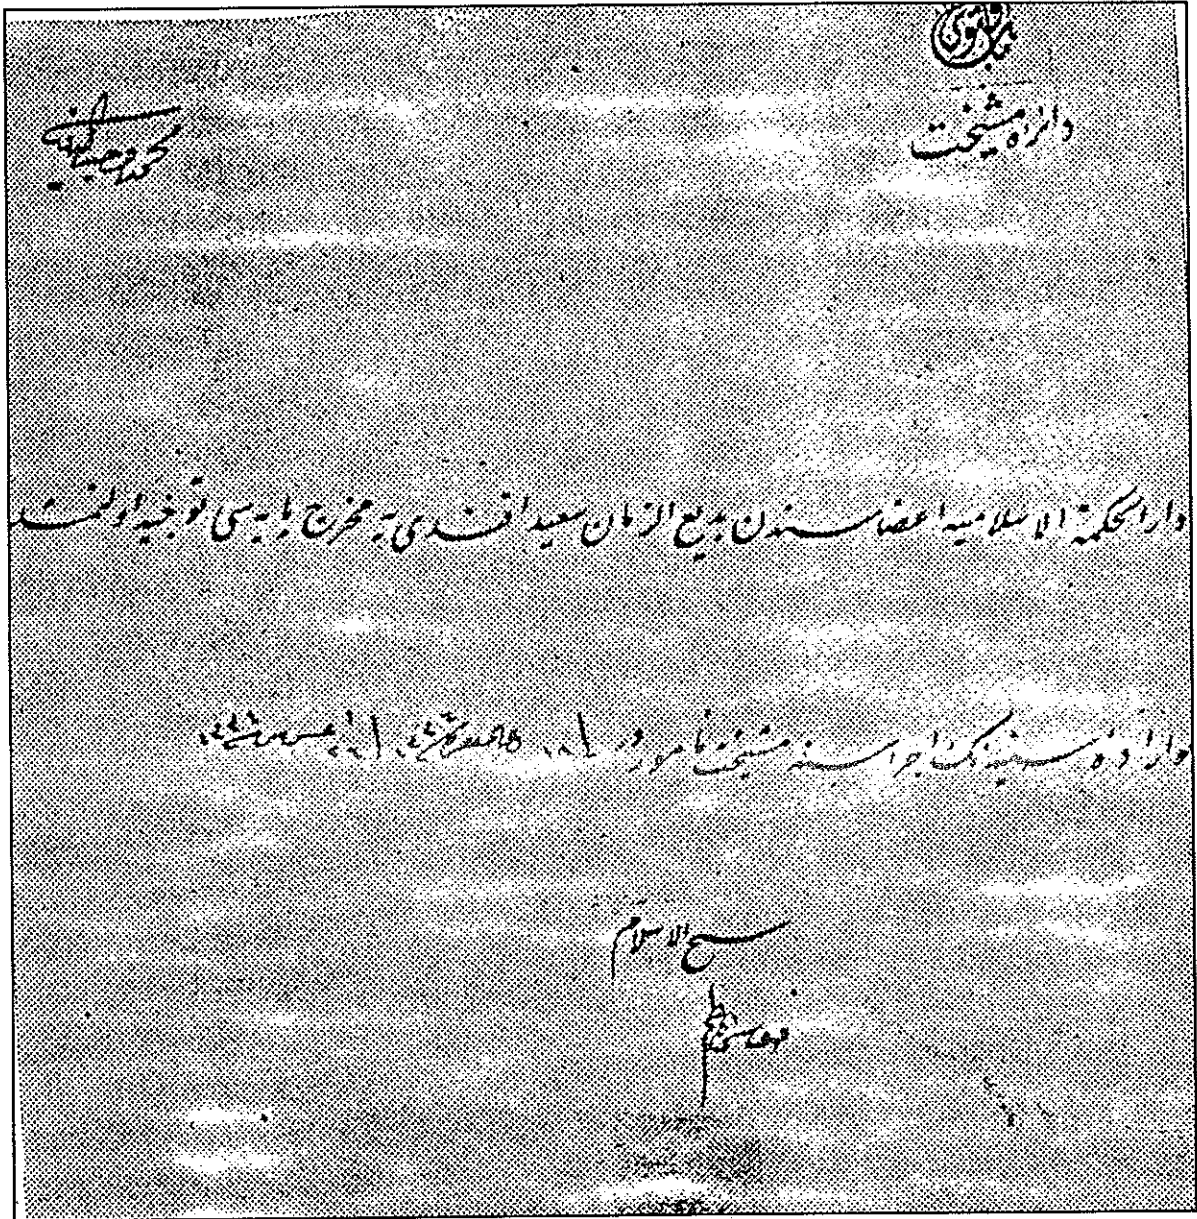 باب فتوى
دائرۀ مشيخت
محمد وحيد الدين
دار الحكمة الاسلاميه اعضاسندن بديع الزمان سعيد افندى يه مخرج پايه سى توجيه اولنمشدر
بو ارادۀ سنيه نك اجراسنه مشيخت مأموردر
شيخ الاسلام
موسى كاظم